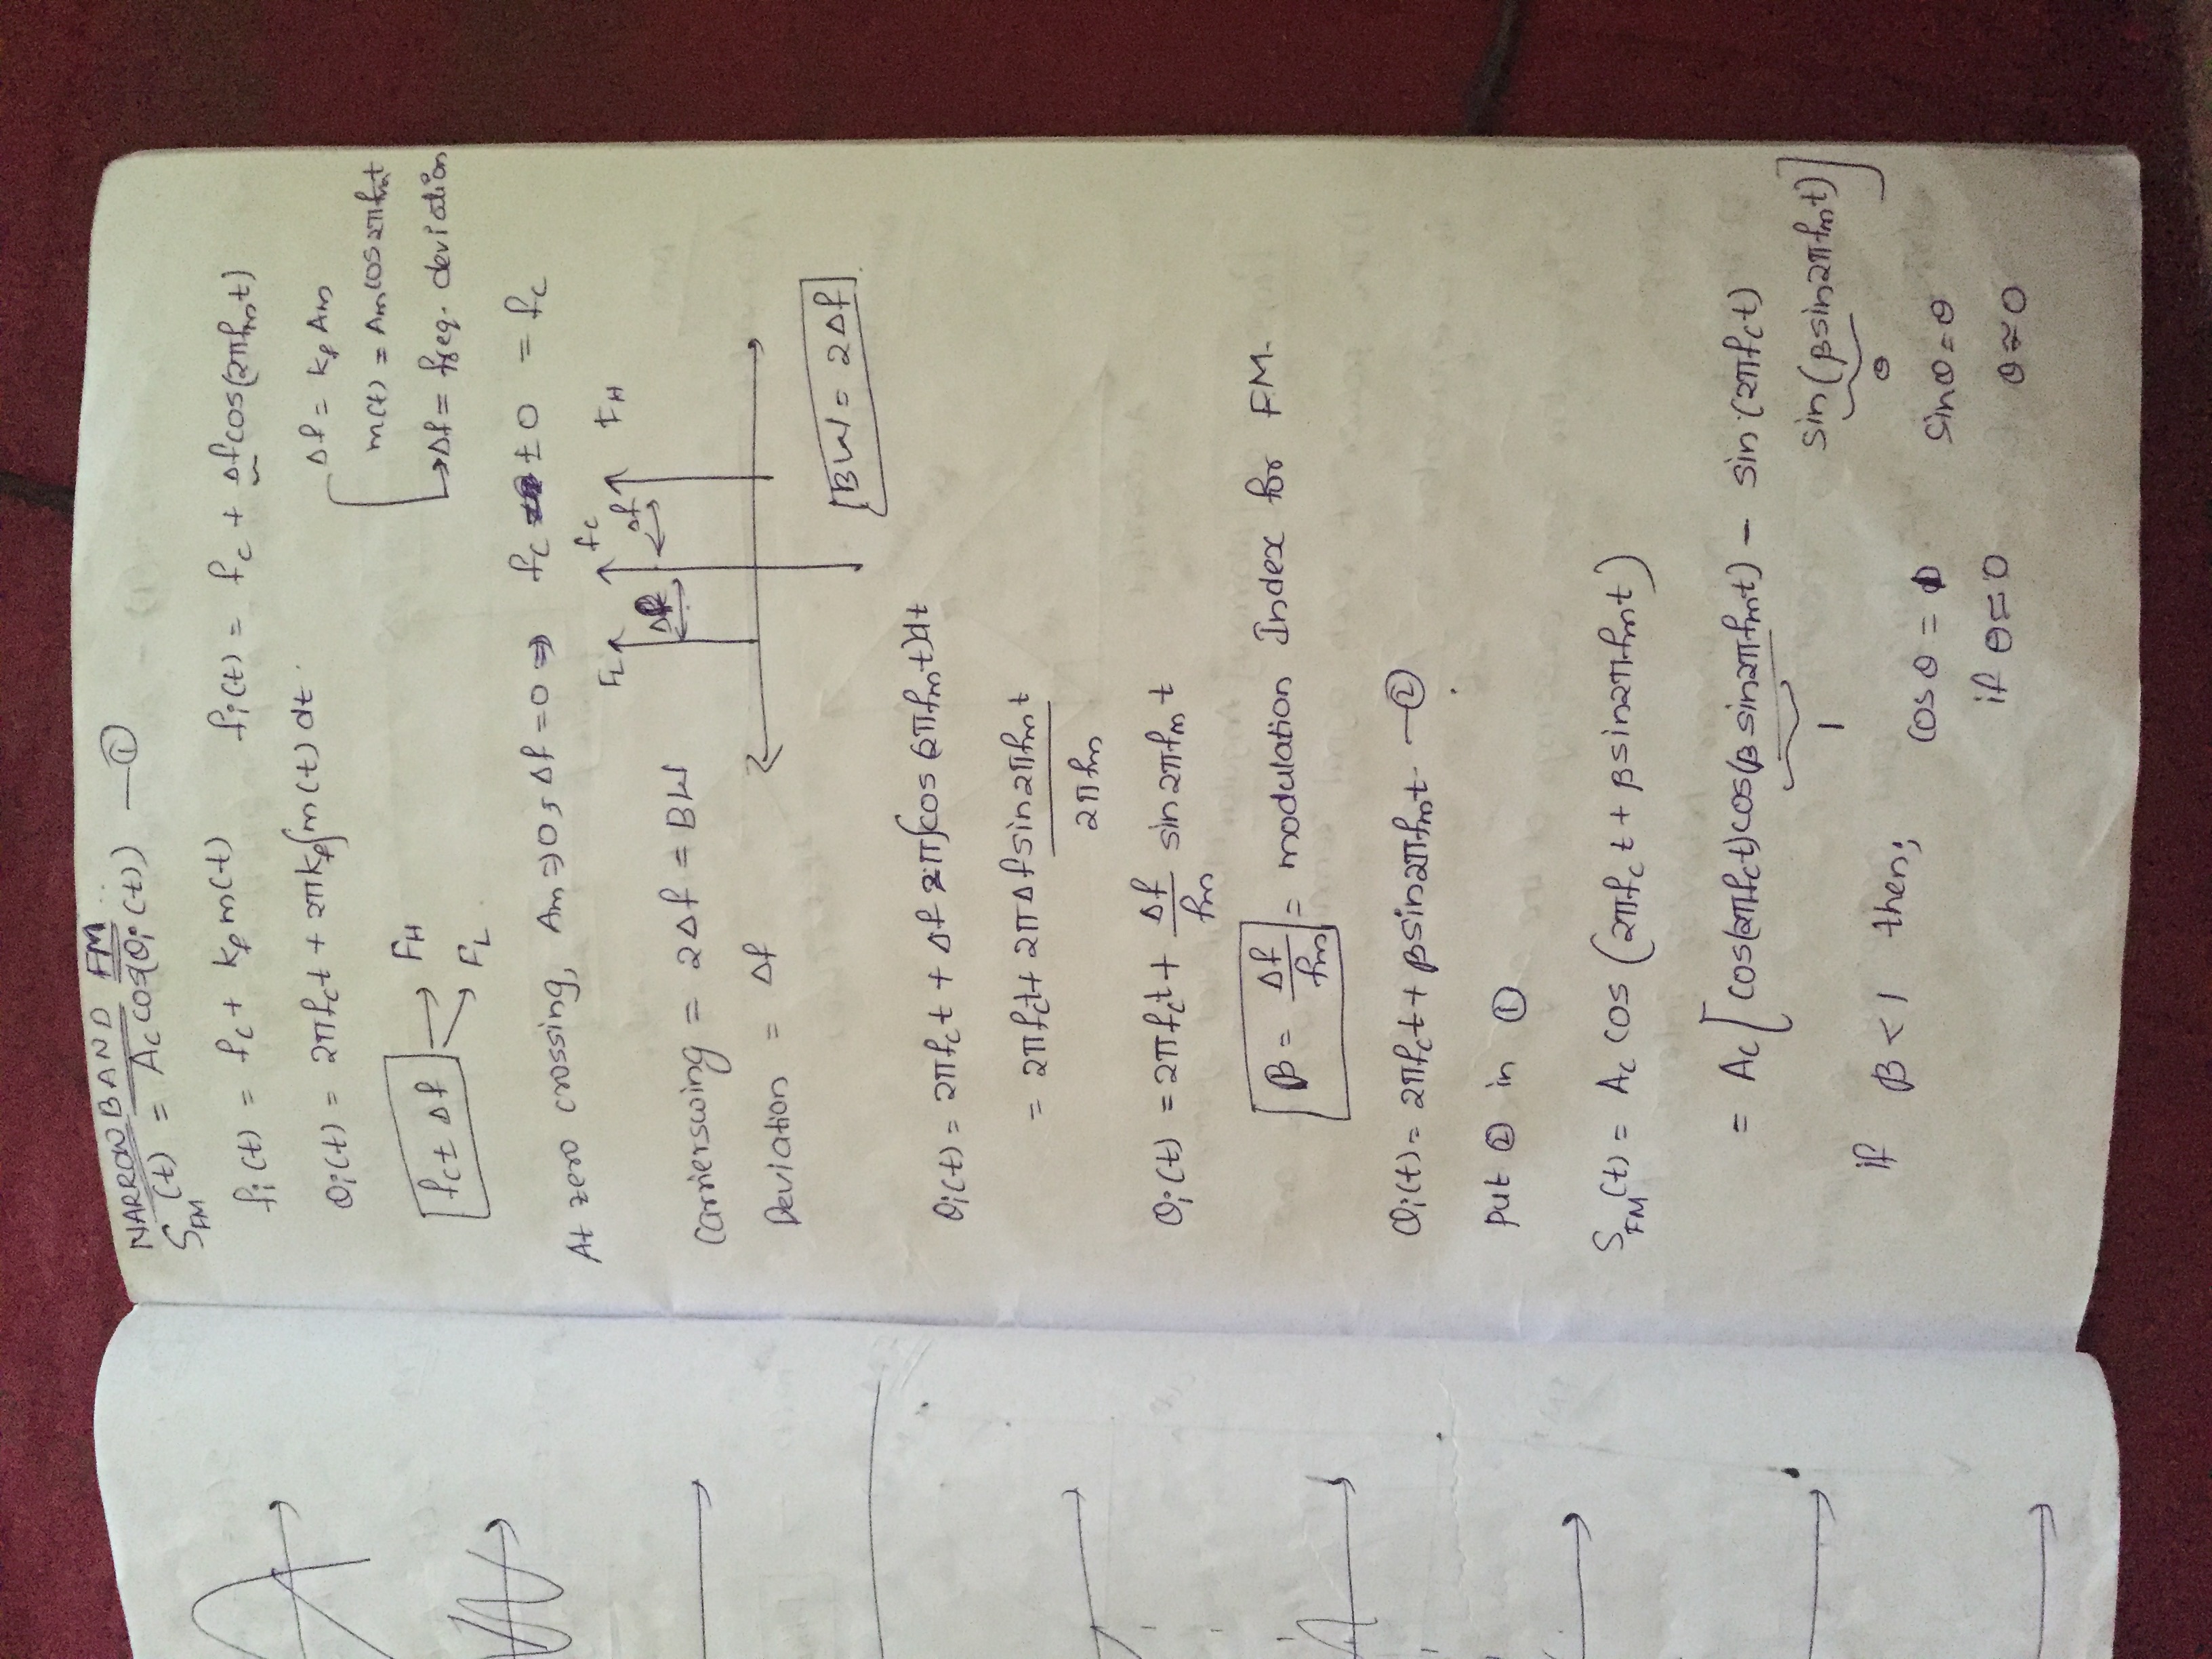 NARROWBAND FM
S_FM(t) = Ac cos(θi(t)) —①
fi(t) = fc + kf m(t)    fi(t) = fc + Δf cos(2πfmt)
θi(t) = 2πfct + 2πkf∫m(t) dt
Δf = kf Am
m(t) = Am cos2πfmt
→Δf = freq. deviation
fc ± Δf → FH
→ FL
At zero crossing, Am ⇒ 0, Δf = 0 ⇒ fc ± 0 = fc
FL fc FH
Δf Δf
Carrierswing = 2Δf = BW
Deviation = Δf
BW = 2Δf
θi(t) = 2πfct + Δf 2π∫cos(2πfmt)dt
= 2πfct + 2πΔf sin2πfmt
2πfm
θi(t) = 2πfct + Δf/fm sin2πfmt
β = Δf/fm = modulation Index for FM.
θi(t) = 2πfct + βsin2πfmt —②
put ② in ①
S_FM(t) = Ac cos (2πfct + βsin2πfmt)
= Ac [cos(2πfct)cos(β sin2πfmt) – sin(2πfct)
sin(βsin2πfmt)]
1
θ
if β < 1 then;
cosθ = 1    sinθ = θ
if θ ≈ 0    θ ≈ 0